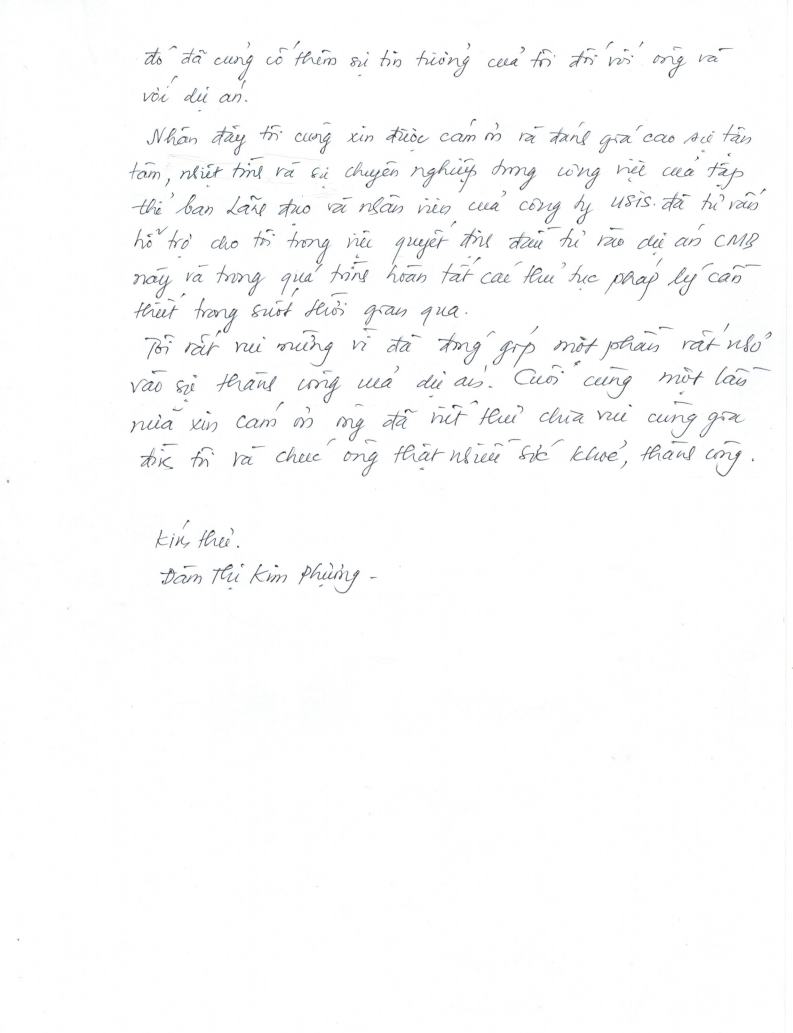 đó đã củng cố thêm sự tin tưởng của tôi đối với ông và
với dự án.
Nhân đây tôi cũng xin được cám ơn và đánh giá cao sự tận
tâm, nhiệt tình và sự chuyên nghiệp trong công việc của tập
thể ban lãnh đạo và nhân viên của công ty USIS. đã tư vấn
hỗ trợ cho tôi trong việc quyết định đầu tư vào dự án CMB
này và trong quá trình hoàn tất các thủ tục pháp lý cần
thiết trong suốt thời gian qua.
Tôi rất vui mừng vì đã đóng góp một phần rất nhỏ
vào sự thành công của dự án. Cuối cùng một lần
nữa xin cám ơn ông đã viết thư chia vui cùng gia
đình tôi và chúc ông thật nhiều sức khoẻ, thành công.
Kính thư.
Đàm Thị Kim Phượng -